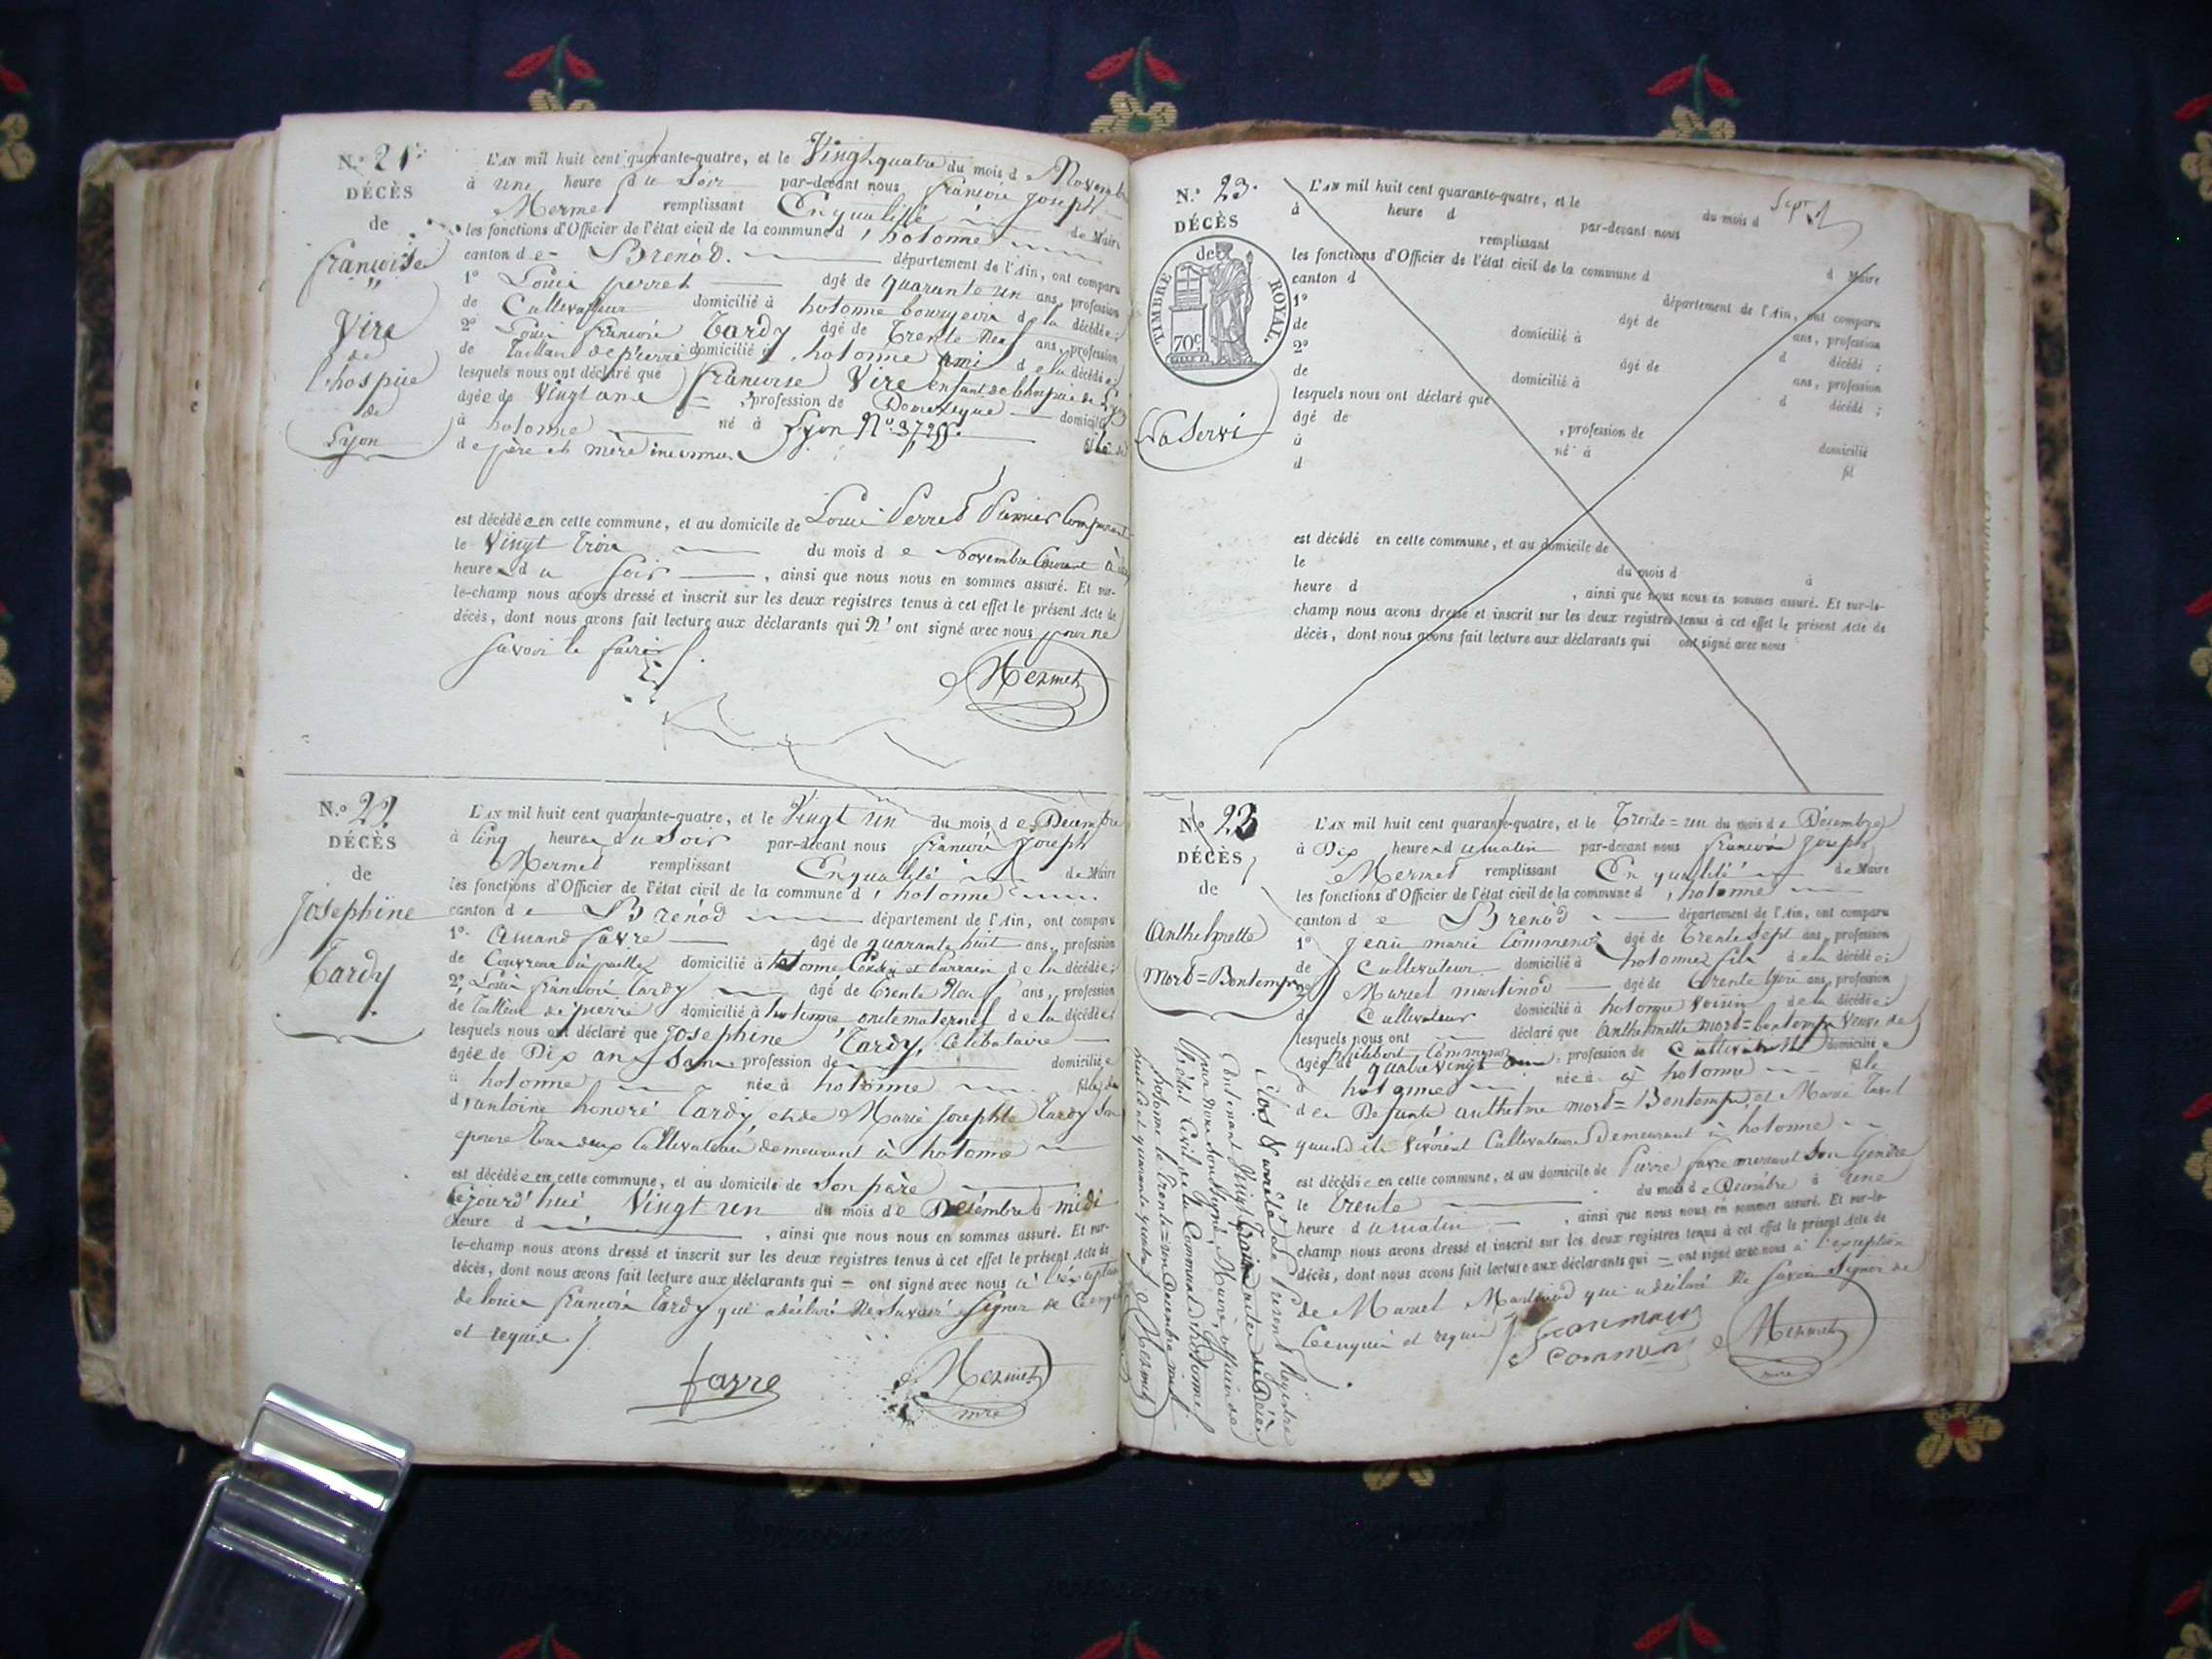 N.º 21.
DÉCÈS
de
françoise
Vire
de
l'hospice
de
Lyon
L'AN mil huit cent quarante-quatre, et le Vingt quatre du mois de Novembre
à une heure du Soir par-devant nous françois Joseph
Mermet remplissant En qualité de Maire
les fonctions d'Officier de l'état civil de la commune d'hotonne
canton de Brenod. département de l'Ain, ont comparu
1º Louis perret âgé de quarante un ans, profession
de Cultivateur domicilié à hotonne bourgeois de la décédée;
2º Louis françois Tardy âgé de Trente Neuf ans, profession
de Tailleur de pierre domicilié à hotonne ami de la décédée;
lesquels nous ont déclaré que françoise Vire enfant de l'hospice de Lyon
âgée de Vingt ans, profession de Domestique domiciliée
à hotonne né à Lyon Nº
de père et mère inconnus
est décédée en cette commune, et au domicile de Louis Perret Premier Comparant
le Vingt Trois du mois de Novembre Courant à
heure du Soir, ainsi que nous nous en sommes assuré. Et sur-
le-champ nous avons dressé et inscrit sur les deux registres tenus à cet effet le présent Acte de
décès, dont nous avons fait lecture aux déclarants qui N'ont signé avec nous pour ne
savoir le faire
Mermet
N.º 22.
DÉCÈS
de
Josephine
Tardy
L'AN mil huit cent quarante-quatre, et le Vingt un du mois de Décembre
à Cinq heures du Soir par-devant nous françois Joseph
Mermet remplissant En qualité de Maire
les fonctions d'Officier de l'état civil de la commune d'hotonne
canton de Brenod département de l'Ain, ont comparu
1º Amand favre âgé de quarante huit ans, profession
de Couvreur à paille domicilié à hotonne Cousin et Parrain de la décédée;
2º Louis françois Tardy âgé de Trente Neuf ans, profession
de Tailleur de pierre domicilié à hotonne oncle maternel de la décédée;
lesquels nous ont déclaré que Josephine Tardy, Célibataire
âgée de Dix ans profession de domiciliée
à hotonne née à hotonne fille de
d'antoine honoré Tardy et de Marie Josephte Tardy Son
epouse tous deux Cultivateurs demeurant à hotonne
est décédée en cette commune, et au domicile de Son père
cejourd'hui Vingt un du mois de Décembre à midi
heure d, ainsi que nous nous en sommes assuré. Et sur-
le-champ nous avons dressé et inscrit sur les deux registres tenus à cet effet le présent Acte de
décès, dont nous avons fait lecture aux déclarants qui = ont signé avec nous à l'exception
de louis françois Tardy qui a déclaré Ne Savoir Signer de Ce enquis
et requis
favre
Mermet
mre
N.º 23.
DÉCÈS
de
TIMBRE ROYAL.
70c
Na Servi
L'AN mil huit cent quarante-quatre, et le du mois d
à heure d par-devant nous
remplissant d Maire
les fonctions d'Officier de l'état civil de la commune d
canton d département de l'Ain, ont comparu
1º âgé de ans, profession
de domicilié à d décédé ;
2º âgé de ans, profession
de domicilié à d décédé ;
lesquels nous ont déclaré que
âgé de , profession de domicilié
à né à fil
d
est décédé en cette commune, et au domicile de
le du mois d à
heure d , ainsi que nous nous en sommes assuré. Et sur-le-
champ nous avons dressé et inscrit sur les deux registres tenus à cet effet le présent Acte de
décès, dont nous avons fait lecture aux déclarants qui ont signé avec nous
N.º 23
DÉCÈS
de
Anthelmette
Mord=Bontemps
L'AN mil huit cent quarante-quatre, et le Trente=un du mois de Décembre
à Dix heures du matin par-devant nous françois Joseph
Mermet remplissant En qualité de Maire
les fonctions d'Officier de l'état civil de la commune d'hotonne
canton de Brenod département de l'Ain, ont comparu
1º Jean marie Commenos âgé de Trente Sept ans, profession
de Cultivateur domicilié à hotonne fils de la décédée;
2º Marcel martinod âgé de Trente trois ans, profession
de Cultivateur domicilié à hotonne Voisin de la décédée;
lesquels nous ont déclaré que Anthelmette Mord=bontemps Veuve de
âgée de quatre vingt ans, profession de domiciliée
à hotonne née à à hotonne fille
de Defunts anthelme Mord=Bontemps, et Marie
quand ils Vivoient Cultivateurs Demeurant à hotonne
est décédée en cette commune, et au domicile de Pierre favre Son Gendre
le Trente du mois de Décembre à une
heure du matin, ainsi que nous nous en sommes assuré. Et sur-le-
champ nous avons dressé et inscrit sur les deux registres tenus à cet effet le présent Acte de
décès, dont nous avons fait lecture aux déclarants qui = ont signé avec nous à l'exception
de Marcel Martinod qui a déclaré Ne Savoir Signer de
Ce enquis et requis
Jean marie
commen
Mermet
mre
Clos & arrêté le Présent Régistre
Contenant Vingt Trois actes de Décès
par Nous Soussigné, Maire, officier de
l'état Civil de la Commune d'hotonne
hotonne le Trente=un Décembre mil
huit Cent quarante quatre Mermet